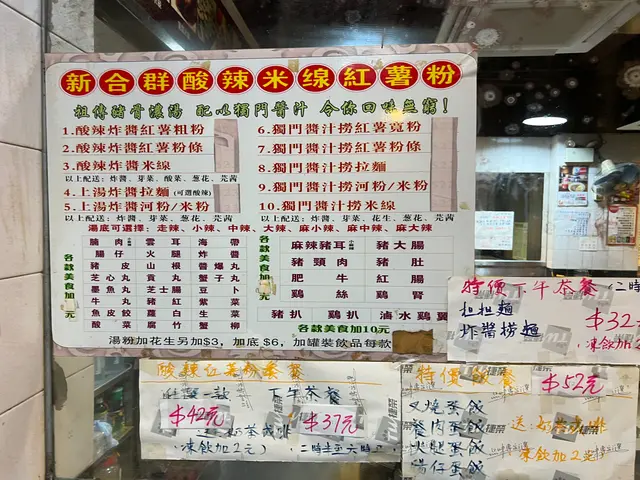 新合群酸辣米线紅薯粉
祖傳豬骨濃湯 配以獨門醬汁 令你回味無窮!
1.酸辣炸醬紅薯粗粉
2.酸辣炸醬紅薯粉條
3.酸辣炸醬米線
以上配送：炸醬、芽菜、酸菜、葱花、芫茜
4.上湯炸醬拉麵(可選酸辣)
5.上湯炸醬河粉/米粉
以上配送：炸醬、芽菜、葱花、芫茜
6.獨門醬汁撈紅薯寬粉
7.獨門醬汁撈紅薯粉條
8.獨門醬汁撈拉麵
9.獨門醬汁撈河粉/米粉
10.獨門醬汁撈米線
以上配送：炸醬、芽菜、花生、葱花、芫茜
湯底可選擇：走辣、小辣、中辣、大辣、麻小辣、麻中辣、麻大辣
各款美食加 元
腩肉 雲耳 海帶
腸仔 火腿 炸醬
豬皮 山根 醬爆丸
芝心丸 貢丸 蟹子丸
墨魚丸 芝士腸 豆卜
牛丸 豬紅 紫菜
魚皮餃 蘿白 生菜
酸菜 腐竹 蟹柳
各款美食加 元
麻辣豬耳 豬大腸
豬頸肉 豬肚
肥牛 紅腸
鷄絲 鷄腎
豬扒 鷄扒 滷水鷄翼
各款美食加10元
湯粉加花生另加$3，加底$6，加罐裝飲品每款
特價下午茶餐
担担麵
炸醬撈麵
$32
凍飲加2
酸辣紅薯粉套餐
$42元
下午茶餐
$37元
(凍飲加2元)
二時至六時
特價飯餐
$52元
叉燒蛋飯
餐肉蛋飯
火腿蛋飯
腸仔蛋飯
凍飲加2元